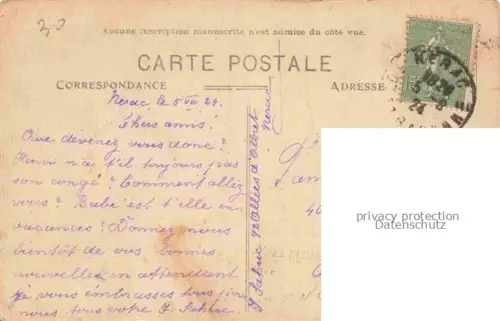 30
Aucune inscription manuscrite n'est admise du côté vue.
CARTE POSTALE
CORRESPONDANCE
ADRESSE
Nerac, le 5 24
Chers amis!
Que devenez vous donc?
Henri n'a t'il toujours pas
son congé? Comment allez
vous? Bebé est t'elle en
vacances? Donnez nous
bientôt de vos bonnes
nouvelles en attendant
je vous embrasses tous pour
nous tous votre J. Sahuc
J Sahuc 12 Allées d'Albret
Nerac
NERAC
24
privacy protection
Datenschutz